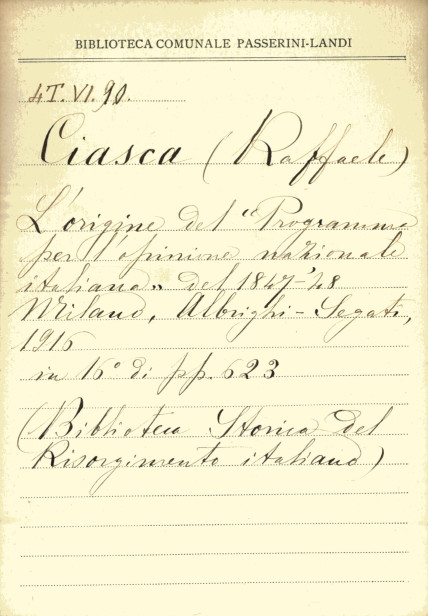 BIBLIOTECA COMUNALE PASSERINI-LANDI
4T.VI.90.
Ciasca (Raffaele)
L'origine del "Programma
per l'opinione nazionale
italiana" del 1847-'48
Milano, Albrighi-Segati,
1916
in 16° di pp. 623
(Biblioteca Storica del
Risorgimento italiano)